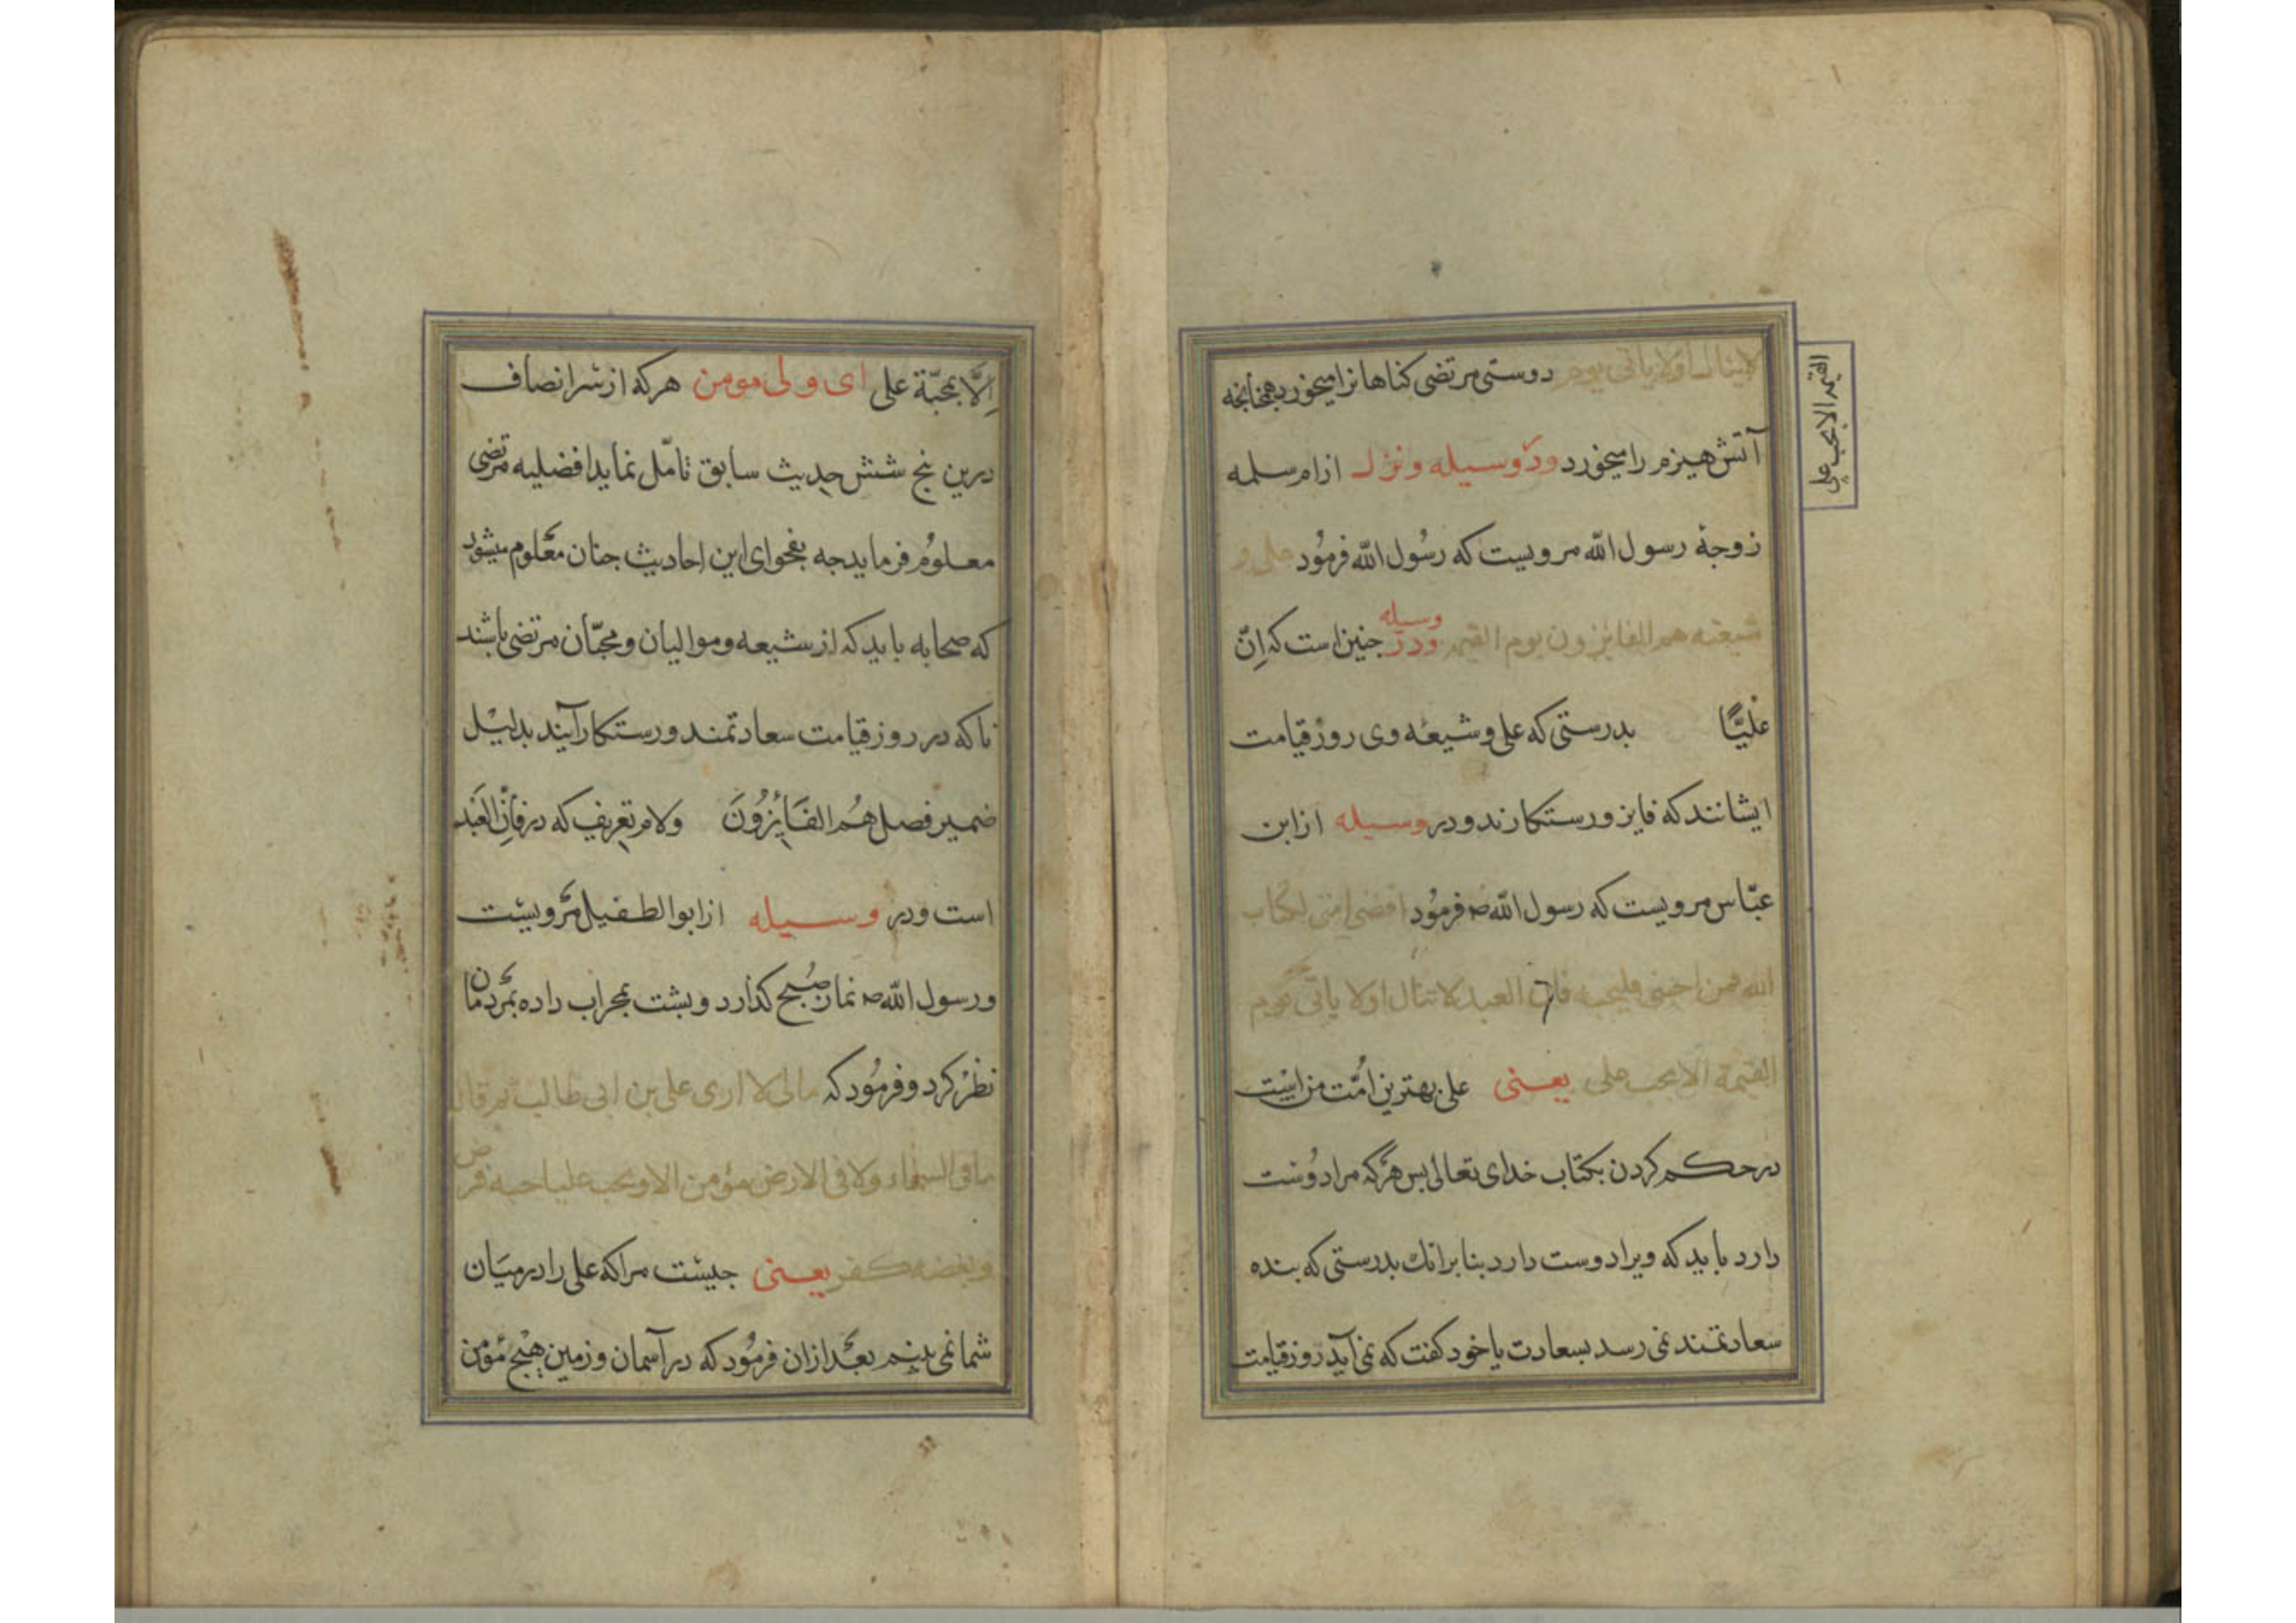 لاینال اولا یاتی یوم دوستی مرتضی کناهانرا میخورد همچنانچه
القیمه الا بحب علی
آتش هیزم را میخورد ودر وسیله ونزل از ام سلمه
زوجهٔ رسول الله مرویست که رسُول الله فرمُود علی و
شیعته هم الفایزون یوم القیمه ودر وسیله چنین است که اِنّ
علیًّا بدرستی که علی و شیعهٔ وی روز قیامت
ایشانند که فایز و رستکارند و در وسیله از ابن
عبّاس مرویست که رسول الله ص فرمُود اقضی امتی بکتاب
الله فمن احبنی فلیحبه فان العبد لا تنال اولا یاتی یوم
القیمة الا بحب علی یعنی علی بهترین اُمّت من است
در حکم کردن بکتاب خدای تعالی بس هرکه مرا دوست
دارد باید که ویرا دوست دارد بنا برانک بدرستی که بنده
سعادتمند نمی رسد بسعادت یا خود کفت که نمی آید روز قیامت
اِلَّا بمحبّة علی ای ولی مومن هرکه از سر انصاف
درین بنج شش حدیث سابق تامّل نماید افضلیه مرتضی
معلوُم فرماید جه بفحوای این احادیث جنان معلوم میشود
که صحابه باید که از شیعه و موالیان و محبّان مرتضی باشند
تا که در روز قیامت سعادتمند و رستکار آیند بدلیل
ضمیر فصل هُم الفَایزُونَ ولام تعریف که در فَاِنَّ العَبد
است ودر وسیله از ابو الطفیل مرویست
ورسول الله ص نماز صُبح کذارد و بشت بمحراب داده بمردمان
نظر کرد و فرمُود که مالی لا اری علی بن ابی طالب ثم قال
ما فی السماء ولا فی الارض مؤمن الا ویحب علیا حبه فرض
وبغضه کفر یعنی جیست مرا که علی را در میان
شما نمی بینم بعد ازان فرمُود که در آسمان و زمین هیچ مؤمن